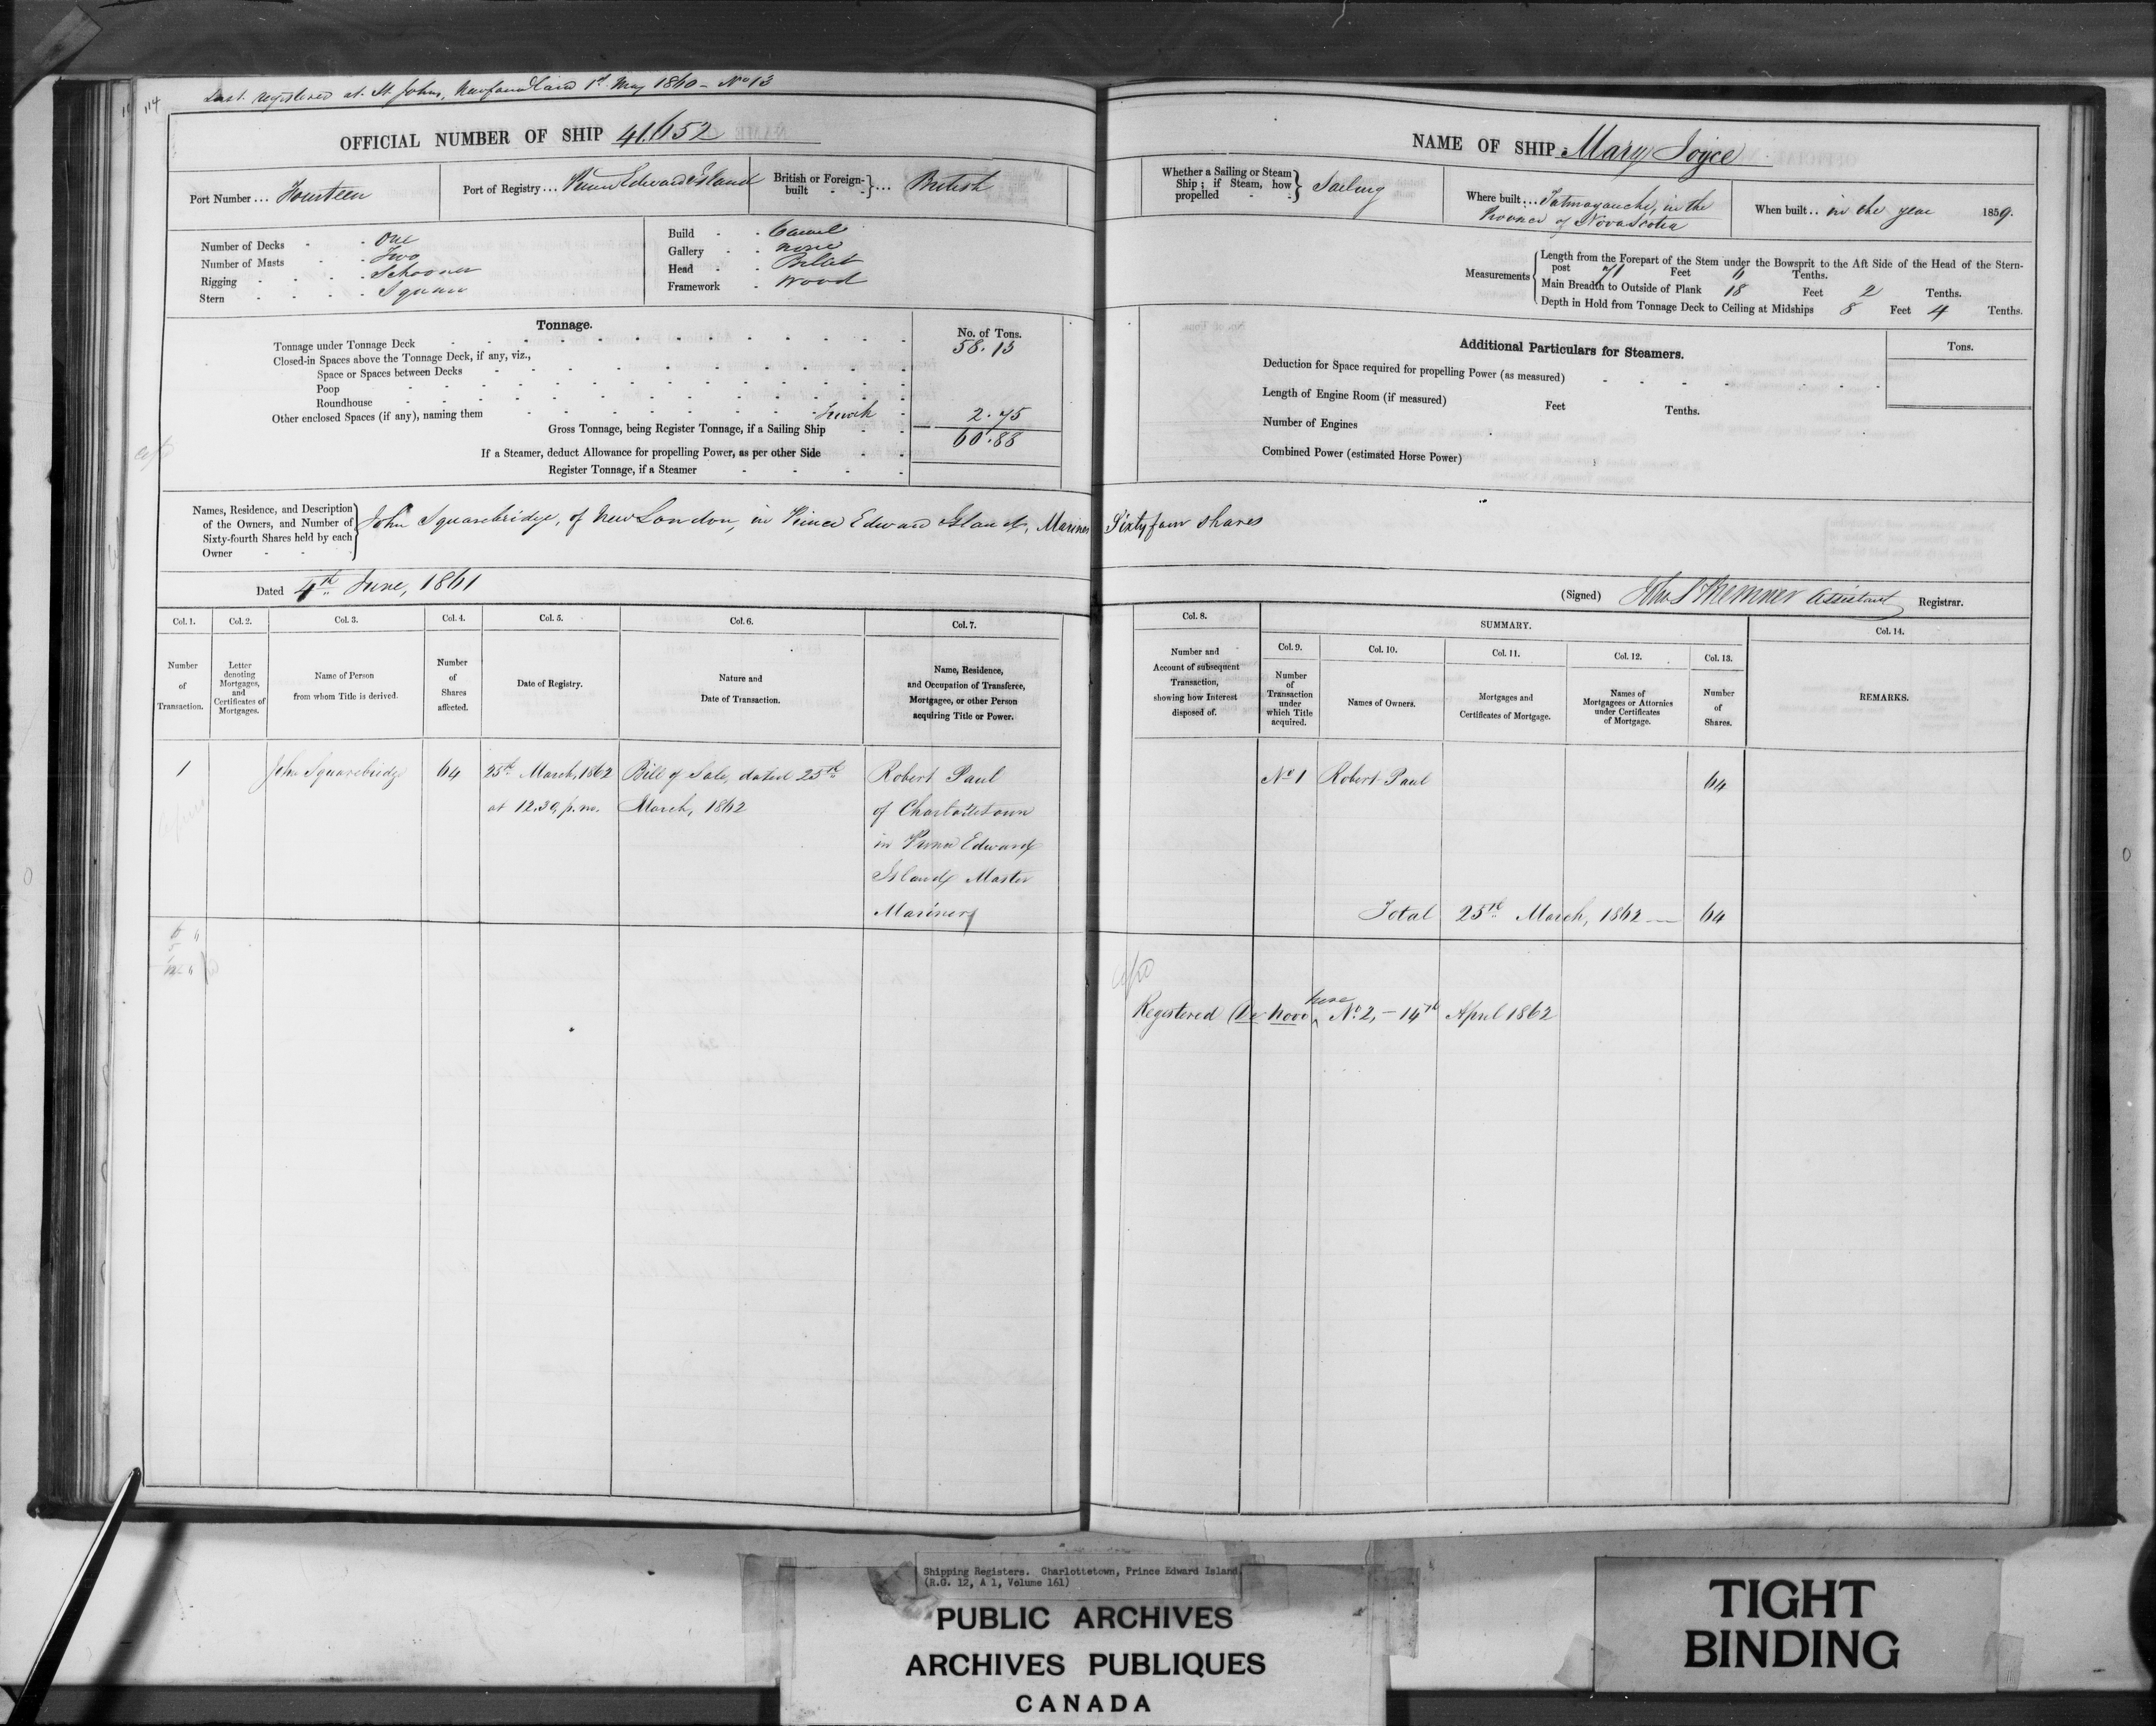 114
Last registered at St Johns, Newfoundland 1st May 1860 - No 13
OFFICIAL NUMBER OF SHIP 41.652
Port Number ... Fourteen
Port of Registry ... Prince Edward Island
British or Foreign-built - - } ... British
Number of Decks - - One
Number of Masts - - Two
Rigging - - - Schooner
Stern - - - - Square
Build - - Carvel
Gallery - - None
Head - - Billet
Framework - Wood
Tonnage.
No. of Tons.
Tonnage under Tonnage Deck 58.13
Closed-in Spaces above the Tonnage Deck, if any, viz.,
Space or Spaces between Decks
Poop
Roundhouse
Other enclosed Spaces (if any), naming them 2.75
Gross Tonnage, being Register Tonnage, if a Sailing Ship 60.88
If a Steamer, deduct Allowance for propelling Power, as per other Side
Register Tonnage, if a Steamer
NAME OF SHIP Mary Joyce
Whether a Sailing or Steam Ship; if Steam, how propelled - - } Sailing
Where built ... Tatmagauche, in the
Province of Nova Scotia
When built .. in the year 1859.
Measurements
Length from the Forepart of the Stem under the Bowsprit to the Aft Side of the Head of the Stern-
post 71 Feet Tenths.
Main Breadth to Outside of Plank 18 Feet 2 Tenths.
Depth in Hold from Tonnage Deck to Ceiling at Midships 8 Feet 4 Tenths.
Additional Particulars for Steamers.
Tons.
Deduction for Space required for propelling Power (as measured)
Length of Engine Room (if measured) Feet Tenths.
Number of Engines
Combined Power (estimated Horse Power)
Names, Residence, and Description
of the Owners, and Number of
Sixty-fourth Shares held by each
Owner - -
John Squarebridge, of New London, in Prince Edward Island, Mariner Sixty four shares
Dated 4th June, 1861
(Signed) Assistant Registrar.
Col. 1.
Number
of
Transaction.
Col. 2.
Letter
denoting
Mortgages,
and
Certificates of
Mortgages.
Col. 3.
Name of Person
from whom Title is derived.
Col. 4.
Number
of
Shares
affected.
Col. 5.
Date of Registry.
Col. 6.
Nature and
Date of Transaction.
Col. 7.
Name, Residence,
and Occupation of Transferee,
Mortgagee, or other Person
acquiring Title or Power.
Col. 8.
Number and
Account of subsequent
Transaction,
showing how Interest
disposed of.
SUMMARY.
Col. 9.
Number
of
Transaction
under
which Title
acquired.
Col. 10.
Names of Owners.
Col. 11.
Mortgages and
Certificates of Mortgage.
Col. 12.
Names of
Mortgagees or Attornies
under Certificates
of Mortgage.
Col. 13.
Number
of
Shares.
Col. 14.
REMARKS.
1
John Squarebridge
64
25th March, 1862
at 12.30, p.m.
Bill of Sale, dated 25th
March, 1862
Robert Paul
of Charlottetown
in Prince Edward
Island Master
Mariner
No 1
Robert Paul
64
Total 25th March, 1862 — 64
Registered De Novo here No. 2, - 14th April 1862
Shipping Registers. Charlottetown, Prince Edward Island
(R.G. 12, A 1, Volume 161)
PUBLIC ARCHIVES
ARCHIVES PUBLIQUES
CANADA
TIGHT
BINDING